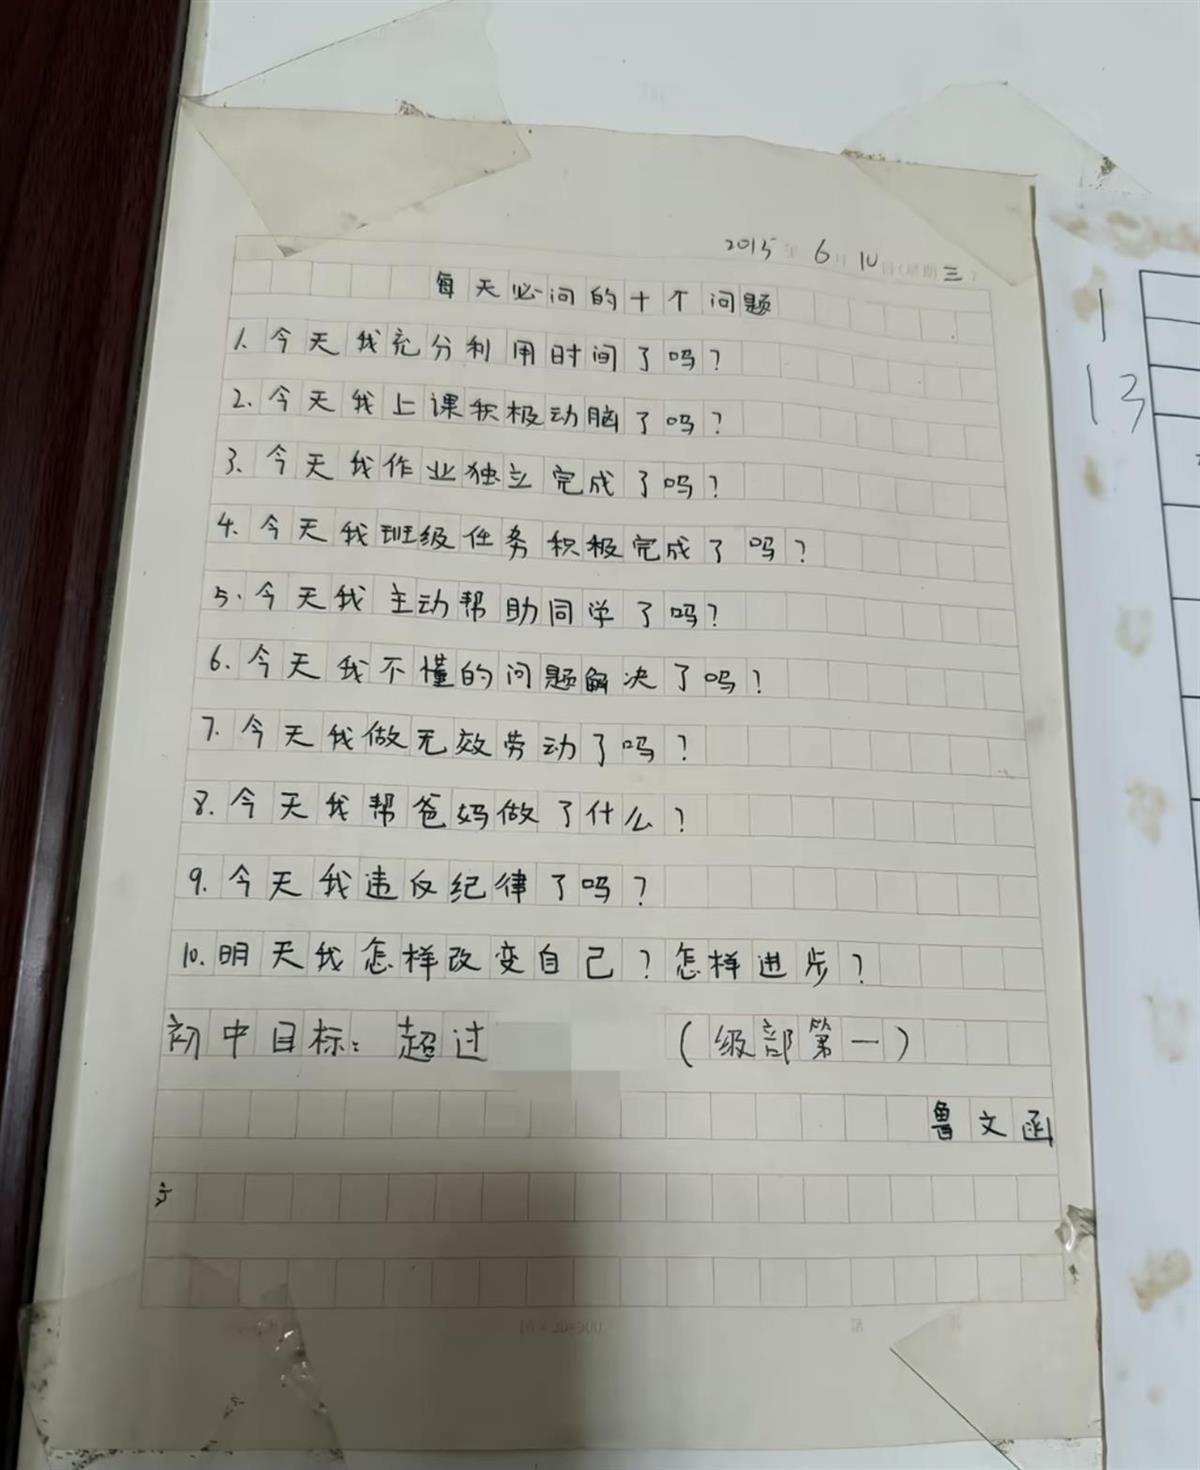 2015年6月10日(星期三)
每天必问的十个问题
1.今天我充分利用时间了吗?
2.今天我上课积极动脑了吗?
3.今天我作业独立完成了吗?
4.今天我班级任务积极完成了吗?
5.今天我主动帮助同学了吗?
6.今天我不懂的问题解决了吗?
7.今天我做无效劳动了吗?
8.今天我帮爸妈做了什么?
9.今天我违反纪律了吗?
10.明天我怎样改变自己?怎样进步?
初中目标:超过(级部第一)
鲁文函
1
13